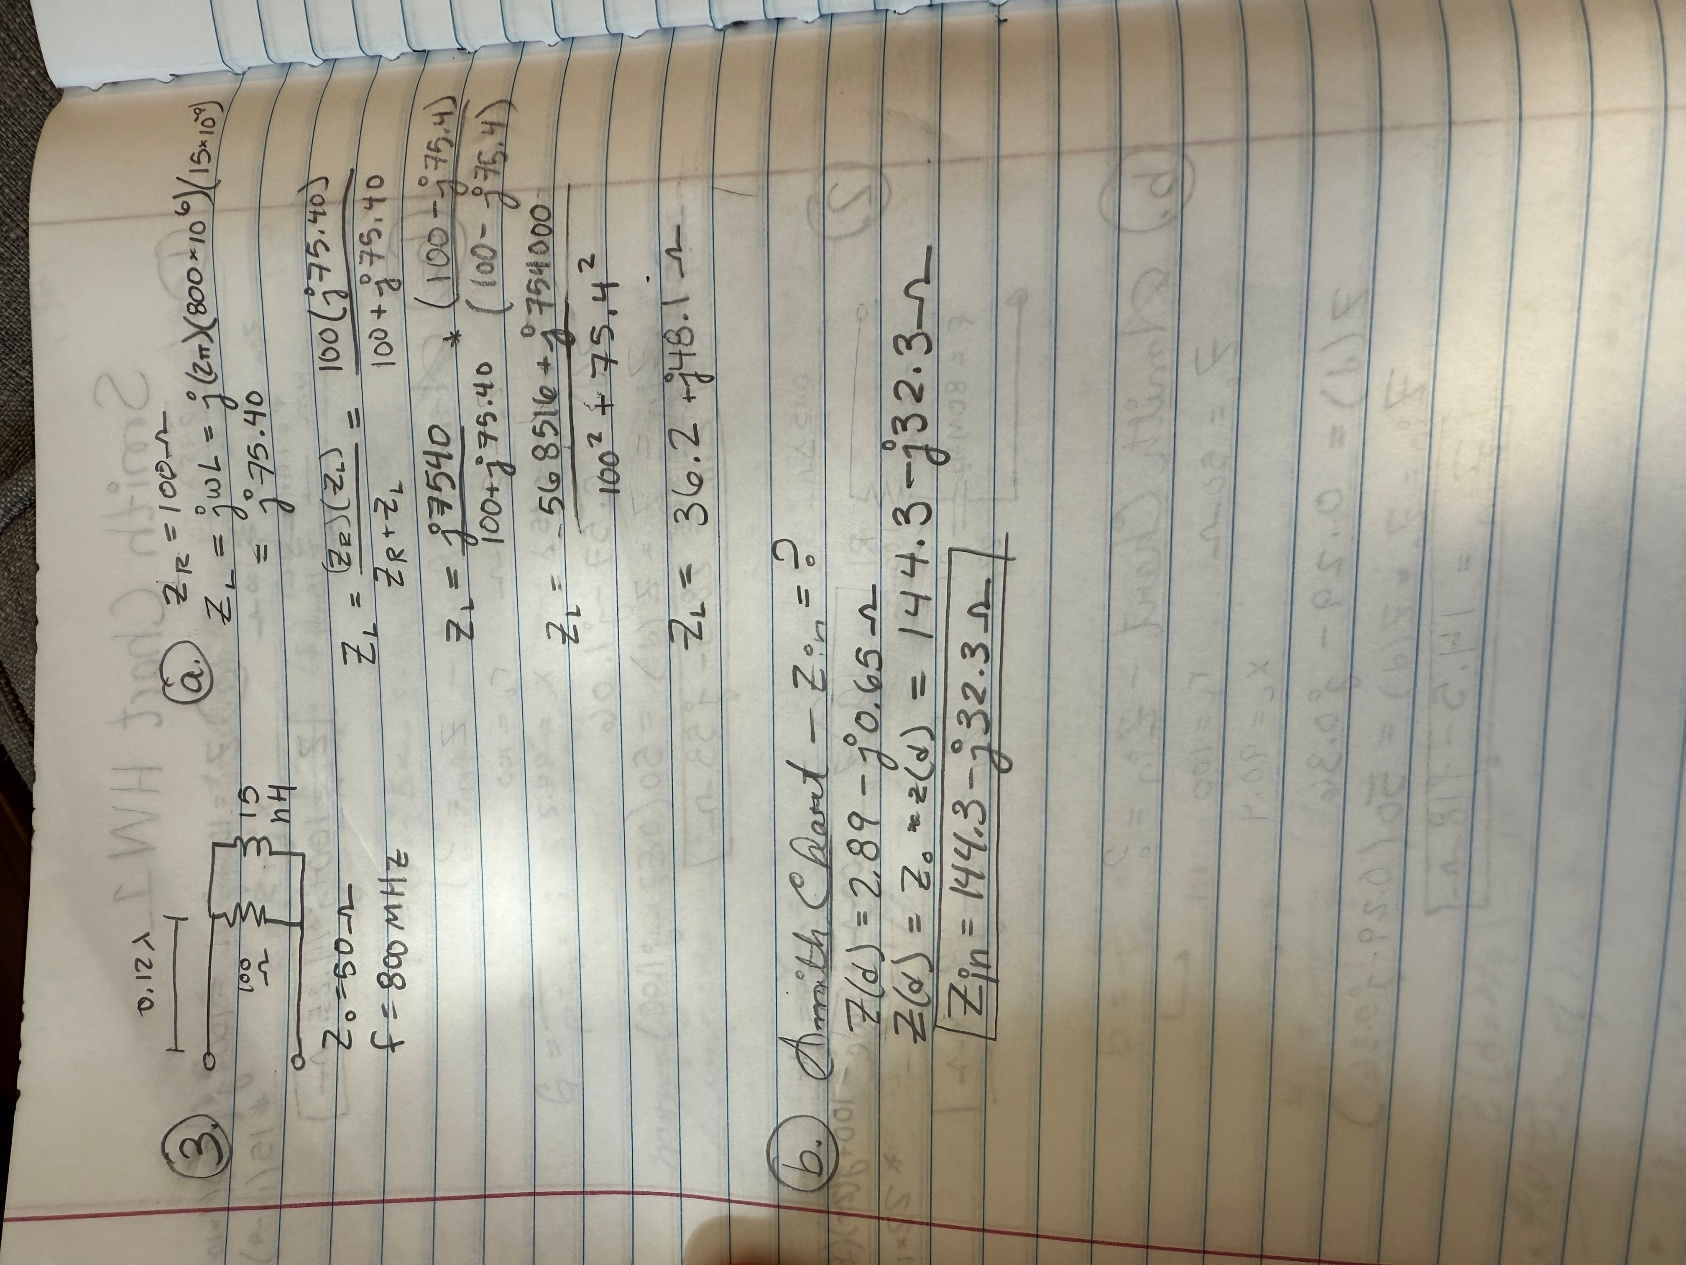 3.
0.12λ
100
Ω
15
nH
Z₀ = 50 Ω
f = 800 MHz
a. Z_R = 100 Ω
Z_L = jωL = j(2π)(800×10⁶)(15×10⁻⁹)
= j75.40
Z_L = (Z_R)(Z_L) / Z_R + Z_L = 100(j75.40) / 100 + j75.40
Z_L = j7540 / 100 + j75.40 * (100 - j75.4) / (100 - j75.4)
Z_L = 568516 + j754000 / 100² + 75.4²
Z_L = 36.2 + j48.1 Ω
b. Smith Chart – Z in = ?
Z(d) = 2.89 - j0.65 Ω
Z(d) = Z₀ * z(d) = 144.3 - j32.3 Ω
Zin = 144.3 - j32.3 Ω